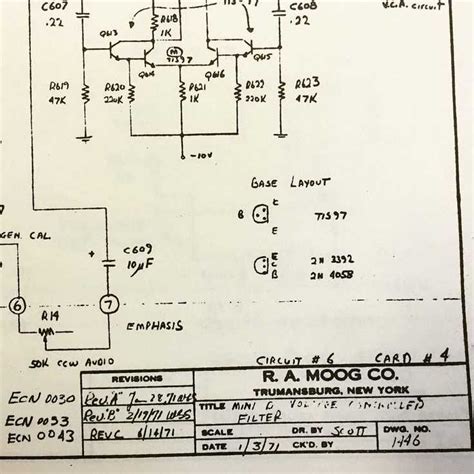 C607
.22
R618
1K
TIS97
C608
.22
V.C.A. CIRCUIT
Q613
Q614
M
TIS97
Q616
Q615
R619
47K
R620
220K
R621
1K
R622
220K
R623
47K
-10V
BASE LAYOUT
B
C
E
TIS97
E
C
B
2N 3392
2N 4058
GEN. CAL.
+
C609
10µF
6
R14
7
EMPHASIS
50K CCW AUDIO
CIRCUIT # 6 CARD # 4
ECN 0030
ECN 0053
ECN 0043
REVISIONS
REV. "B" 2/17/71
REV C 6/14/71
R. A. MOOG CO.
TRUMANSBURG, NEW YORK
TITLE MINI D VOLTAGE CONTROLLED
FILTER
SCALE
DR. BY SCOTT
DWG. NO.
1146
DATE 1/3/71
CK'D. BY